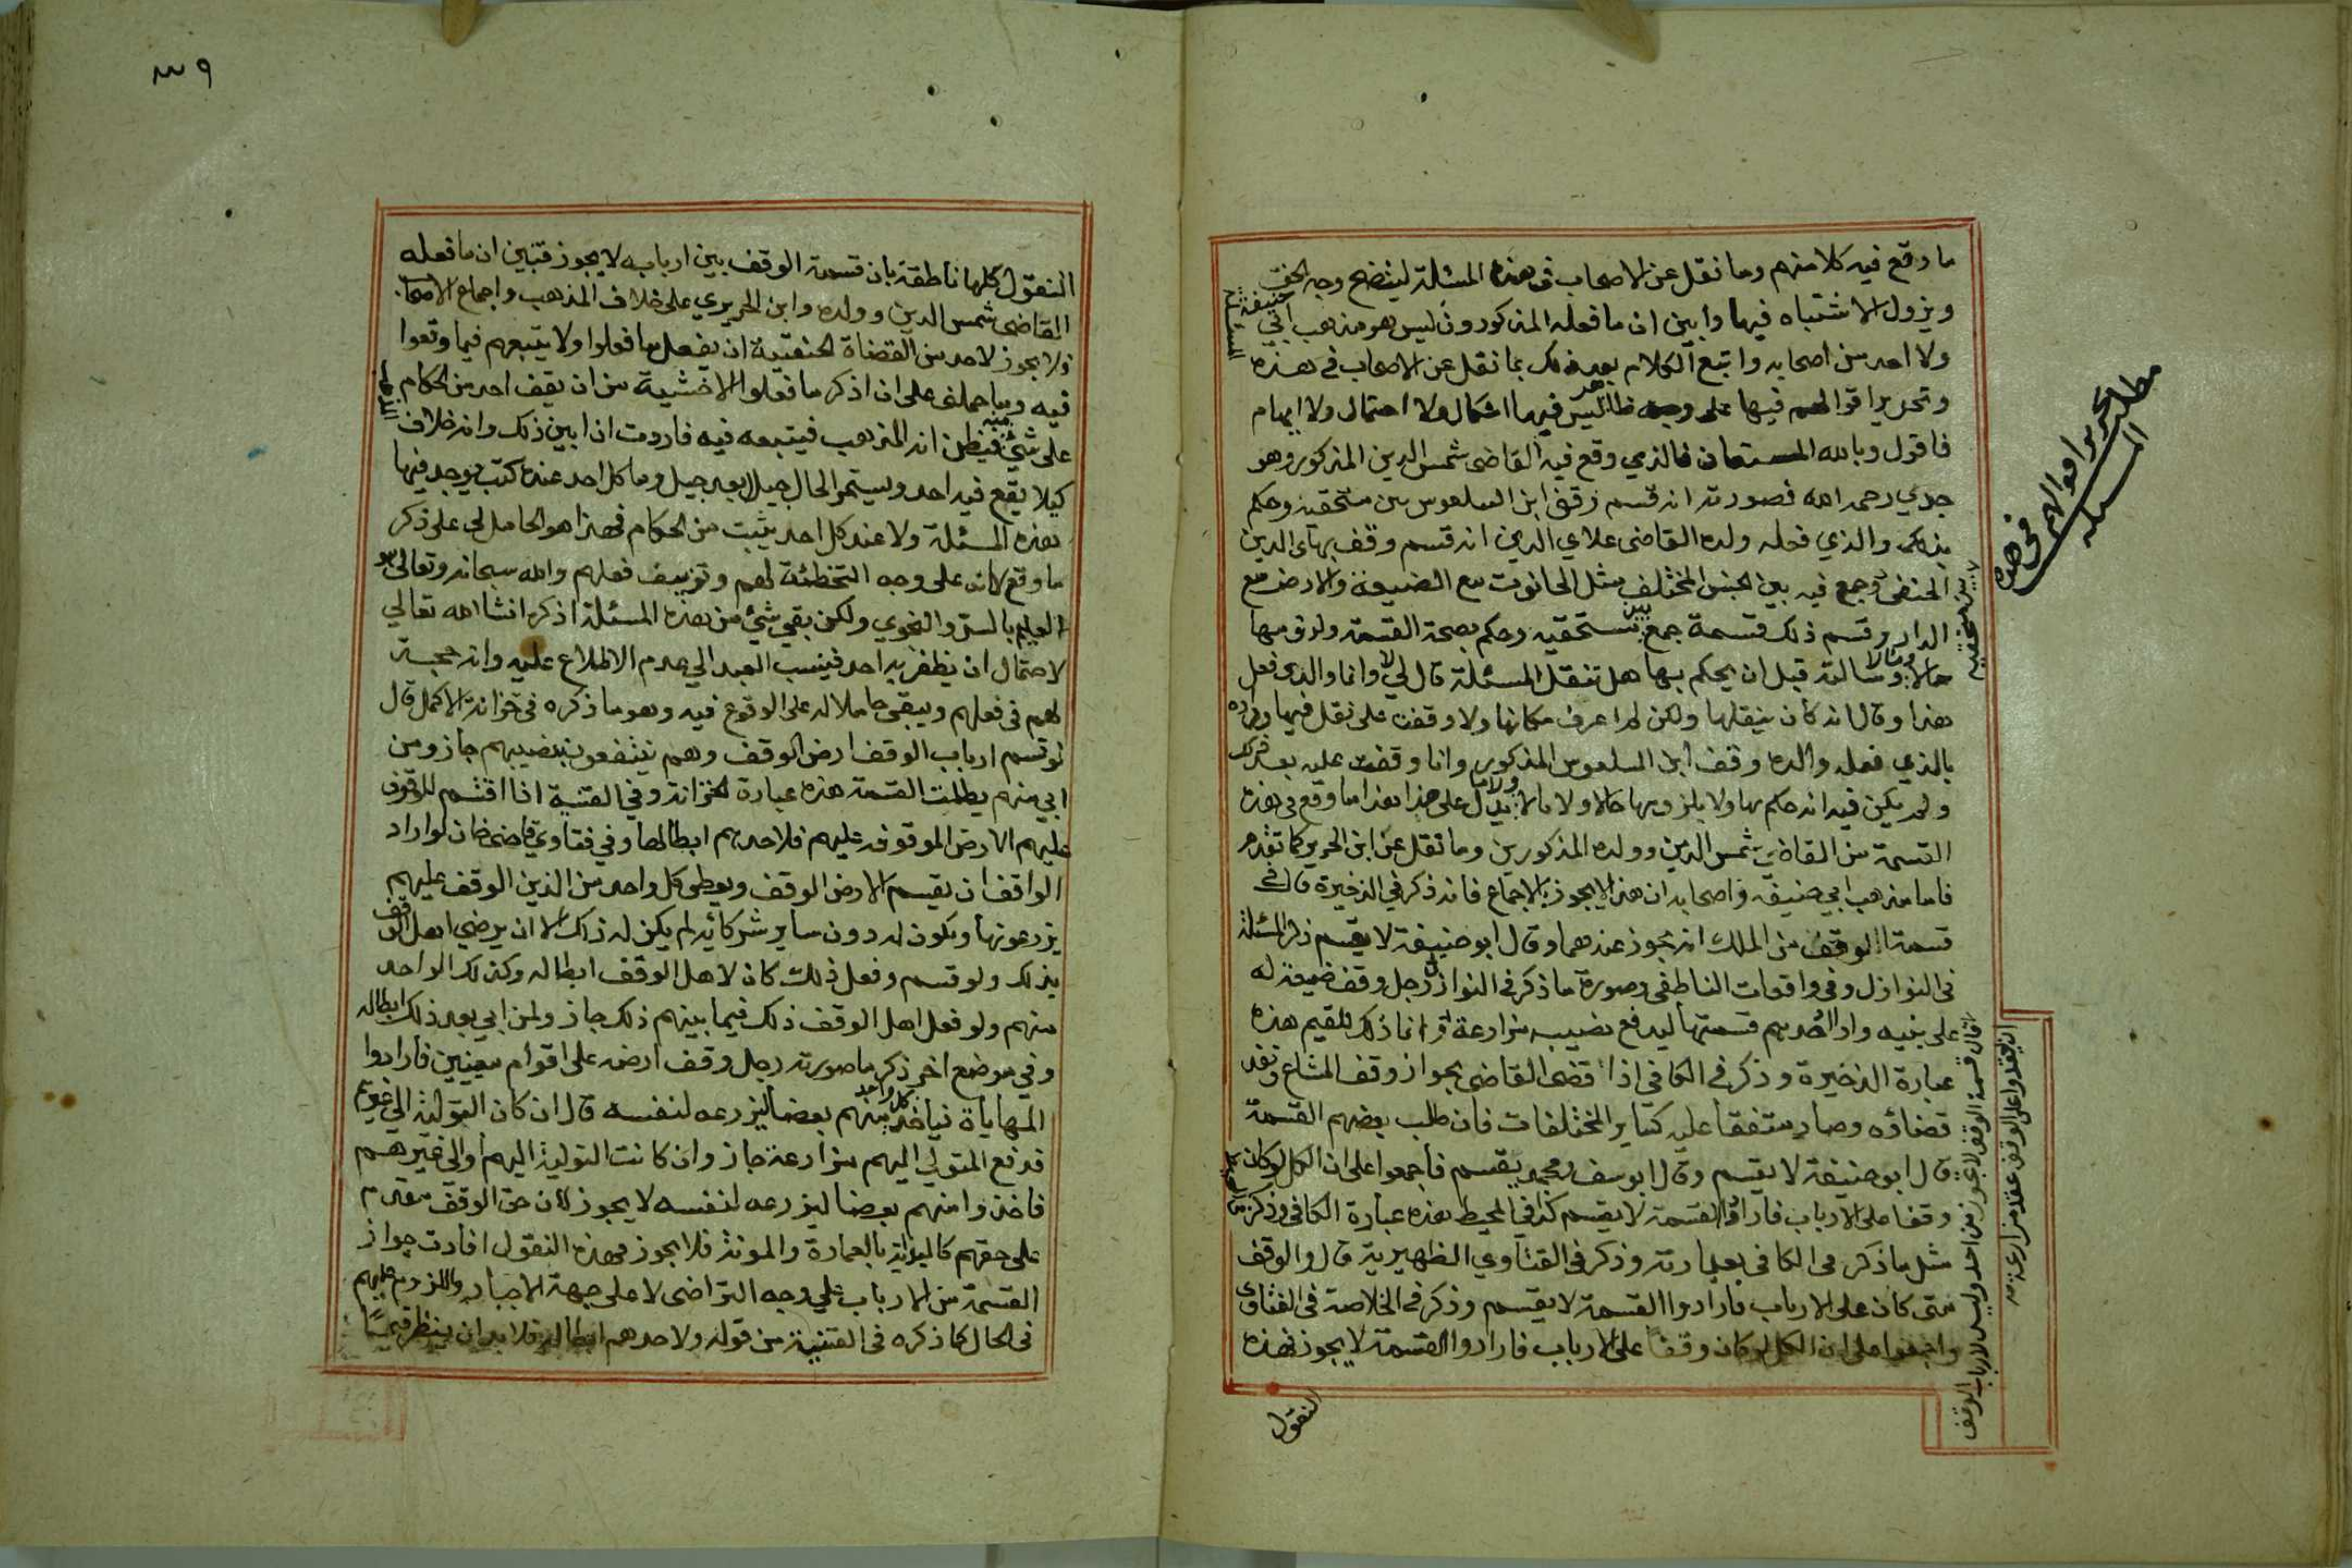 ما وقع فيه كلا منهم وما نقل عن الاصحاب في هذه المسئلة ليتضح وجه الحق
ويزول الاشتباه فيها وابين ان ما فعله المذكورون ليس هو مذهب ابي حنيفة
ولا احد من اصحابه واتبع الكلام بعد ذلك بما نقل عن الاصحاب في هذه المسئلة
وتحرير اقوالهم فيها على وجه ظاهر ليس فيها اشكال ولا احتمال ولا ايهام
فاقول وبالله المستعان فالذي وقع فيه القاضي شمس الدين المذكور وهو
جدي رحمه الله فصورته انه قسم وقف ابن السلعوس بين مستحقيه وحكم
بذلك والذي فعله ولده القاضي علاي الدين انه قسم وقف بهاى الدين
الحنفي وجمع فيه بين الجنس المختلف مثل الحانوت مع الضيعة والارض مع
الدار وقسم ذلك قسمة جمع بين مستحقيه وحكم بصحة القسمة ولزومها
حالا ومالا وسالته قبل ان يحكم بها هل تنقل المسئلة قال لي لا وانما والدي فعل
هذا وقال انه كان ينقلها ولكن لم اعرف مكانها ولا وقفت على نقل فيها ومراده
بالذي فعله والده وقف ابن السلعوس المذكور وانا وقفت عليه بعد ذلك
ولم يكن فيه انه حكم بها ولا بلزومها حالا ولا مالا ولا ما يدل على هذا هذا ما وقع في هذه
القسمة من القاضي شمس الدين وولده المذكورين وما نقل عن ابن الحريري كما تقدم
فاما مذهب ابي حنيفة واصحابه ان هذا لا يجوز بالاجماع فانه ذكر في الذخيرة قال في
قسمة الوقف من الملك انه يجوز عندهما وقال ابو حنيفة لا يقسم ذكر المسئلة
في النوازل وفي واقعات الناطفي وصورة ما ذكر في النوازل رجل وقف ضيعة له
على بنيه واراد احدهم قسمتها ليدفع نصيبه مزارعة قال انما ذلك للقيم هذه
عبارة الذخيرة وذكر في الكافي اذا قضى القاضي بجواز وقف المشاع ونفذ
قضاؤه وصار متفقا عليه كساير المختلفات فان طلب بعضهم القسمة
قال ابو حنيفة لا يقسم وقال ابو يوسف ومحمد يقسم فاجمعوا على ان الكل لو كان
وقفا على الارباب فارادوا القسمة لا يقسم كذا في المحيط هذه عبارة الكافي وذكر
مثل ما ذكر في الكافي بعبارته وذكر في الفتاوي الظهيرية قال والوقف
متى كان على الارباب فارادوا القسمة لا يقسم وذكر في الخلاصة في الفتاوى
واجمعوا على ان الكل لو كان وقفا على الارباب فارادوا القسمة لا يجوز فهذه
النقول
مطلب تحرير اقوالهم في هذه
المسئلة
قال قسمة الوقف لا يجوز من احد وليس لارباب الوقف
ان يعقدوا على الوقف عقد مزارعة
٣٩
النقول كلها ناطقة بان قسمة الوقف بين اربابه لا يجوز فتبين ان ما فعله
القاضي شمس الدين وولده وابن الحريري على خلاف المذهب واجماع الاصحاب
ولا يجوز لاحد من القضاة الحنفية ان يفعل ما فعلوا ولا يتبعهم فيما وقعوا
فيه وما حملني على ان اذكر ما فعلوا الا خشية من ان يقف احد من الحكام
على شئ منه فيظن انه المذهب فيتبعه فيه فاردت ان ابين ذلك وانه خلاف المذهب
كيلا يقع فيه احد ويستمر الحال جيلا بعد جيل وما كل احد عنده كتب يوجد فيها
هذه المسئلة ولا عند كل احد يثبت من الحكام فهذا هو الحامل لي على ذكر
ما وقع لا انه على وجه التخطئة لهم وتزييف فعلهم والله سبحانه وتعالى هو
العليم بالسر والنجوي ولكن بقي شئ من هذه المسئلة اذكره انشا الله تعالي
لاحتمال ان يظفر به احد فينسب العبد الي عدم الاطلاع عليه وانه حجة
لهم في فعلهم ويبقى حاملا له على الوقوع فيه وهو ما ذكره في خزانة الاكمل قال
لو قسم ارباب الوقف ارض الوقف وهم ينتفعون بنصيبهم جاز ومن
ابي منهم بطلت القسمة هذه عبارة الخزانة وفي القنية اذا اقتسم الموقوف
عليهم الارض الموقوفة عليهم فلاحدهم ابطالها وفي فتاوي قاضي خان لو اراد
الواقف ان يقسم الارض الوقف ويعطي كل واحد من الذين الوقف عليهم
يزرعونها ويكون له دون ساير شركائه لم يكن له ذلك الا ان يرضي اهل الوقف
بذلك ولو قسم وفعل ذلك كان لاهل الوقف ابطاله وكذلك الواحد
منهم ولو فعل اهل الوقف ذلك فيما بينهم ذلك جاز ولمن ابي بعد ذلك ابطاله
وفي موضع اخر ذكر ما صورته رجل وقف ارضه على اقوام معينين فارادوا
المهاياة فياخذ كل واحد منهم بعضا ليزرعه لنفسه قال ان كان التولية الي غيرهم
فدفع المتولي اليهم مزارعة جاز وان كانت التولية اليهم والي غيرهم
فاخذوا منهم بعضا ليزرعه لنفسه لا يجوز لان حق الوقف مقدم
على حقهم كالبداية بالعمارة والمونة فلا يجوز فهذه النقول افادت جواز
القسمة من الارباب علي وجه التراضي لا على جهة الاجبار واللزوم عليهم
في الحال كما ذكره في القنية من قوله ولاحدهم ابطالها فلا بد ان ينظر